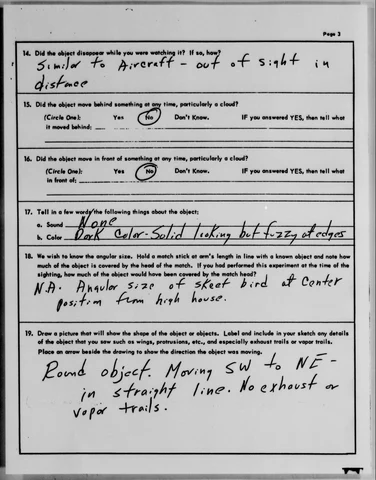 Page 3
14. Did the object disappear while you were watching it? If so, how?
Similar to Aircraft - out of sight in
distance
15. Did the object move behind something at any time, particularly a cloud?
(Circle One): Yes No Don't Know. IF you answered YES, then tell what
it moved behind:
16. Did the object move in front of something at any time, particularly a cloud?
(Circle One): Yes No Don't Know. IF you answered YES, then tell what
in front of;
17. Tell in a few words the following things about the object;
a. Sound None
b. Color Dark Color-Solid looking but fuzzy at edges
18. We wish to know the angular size. Hold a match stick at arm's length in line with a known object and note how
much of the object is covered by the head of the match. If you had performed this experiment at the time of the
sighting, how much of the object would have been covered by the match head?
N.A. Angular size of skeet bird at center
position from high house.
19. Draw a picture that will show the shape of the object or objects. Label and include in your sketch any details
of the object that you saw such as wings, protrusions, etc., and especially exhaust trails or vapor trails.
Place an arrow beside the drawing to show the direction the object was moving.
Round object. Moving SW to NE-
in straight line. No exhaust or
vapor trails.